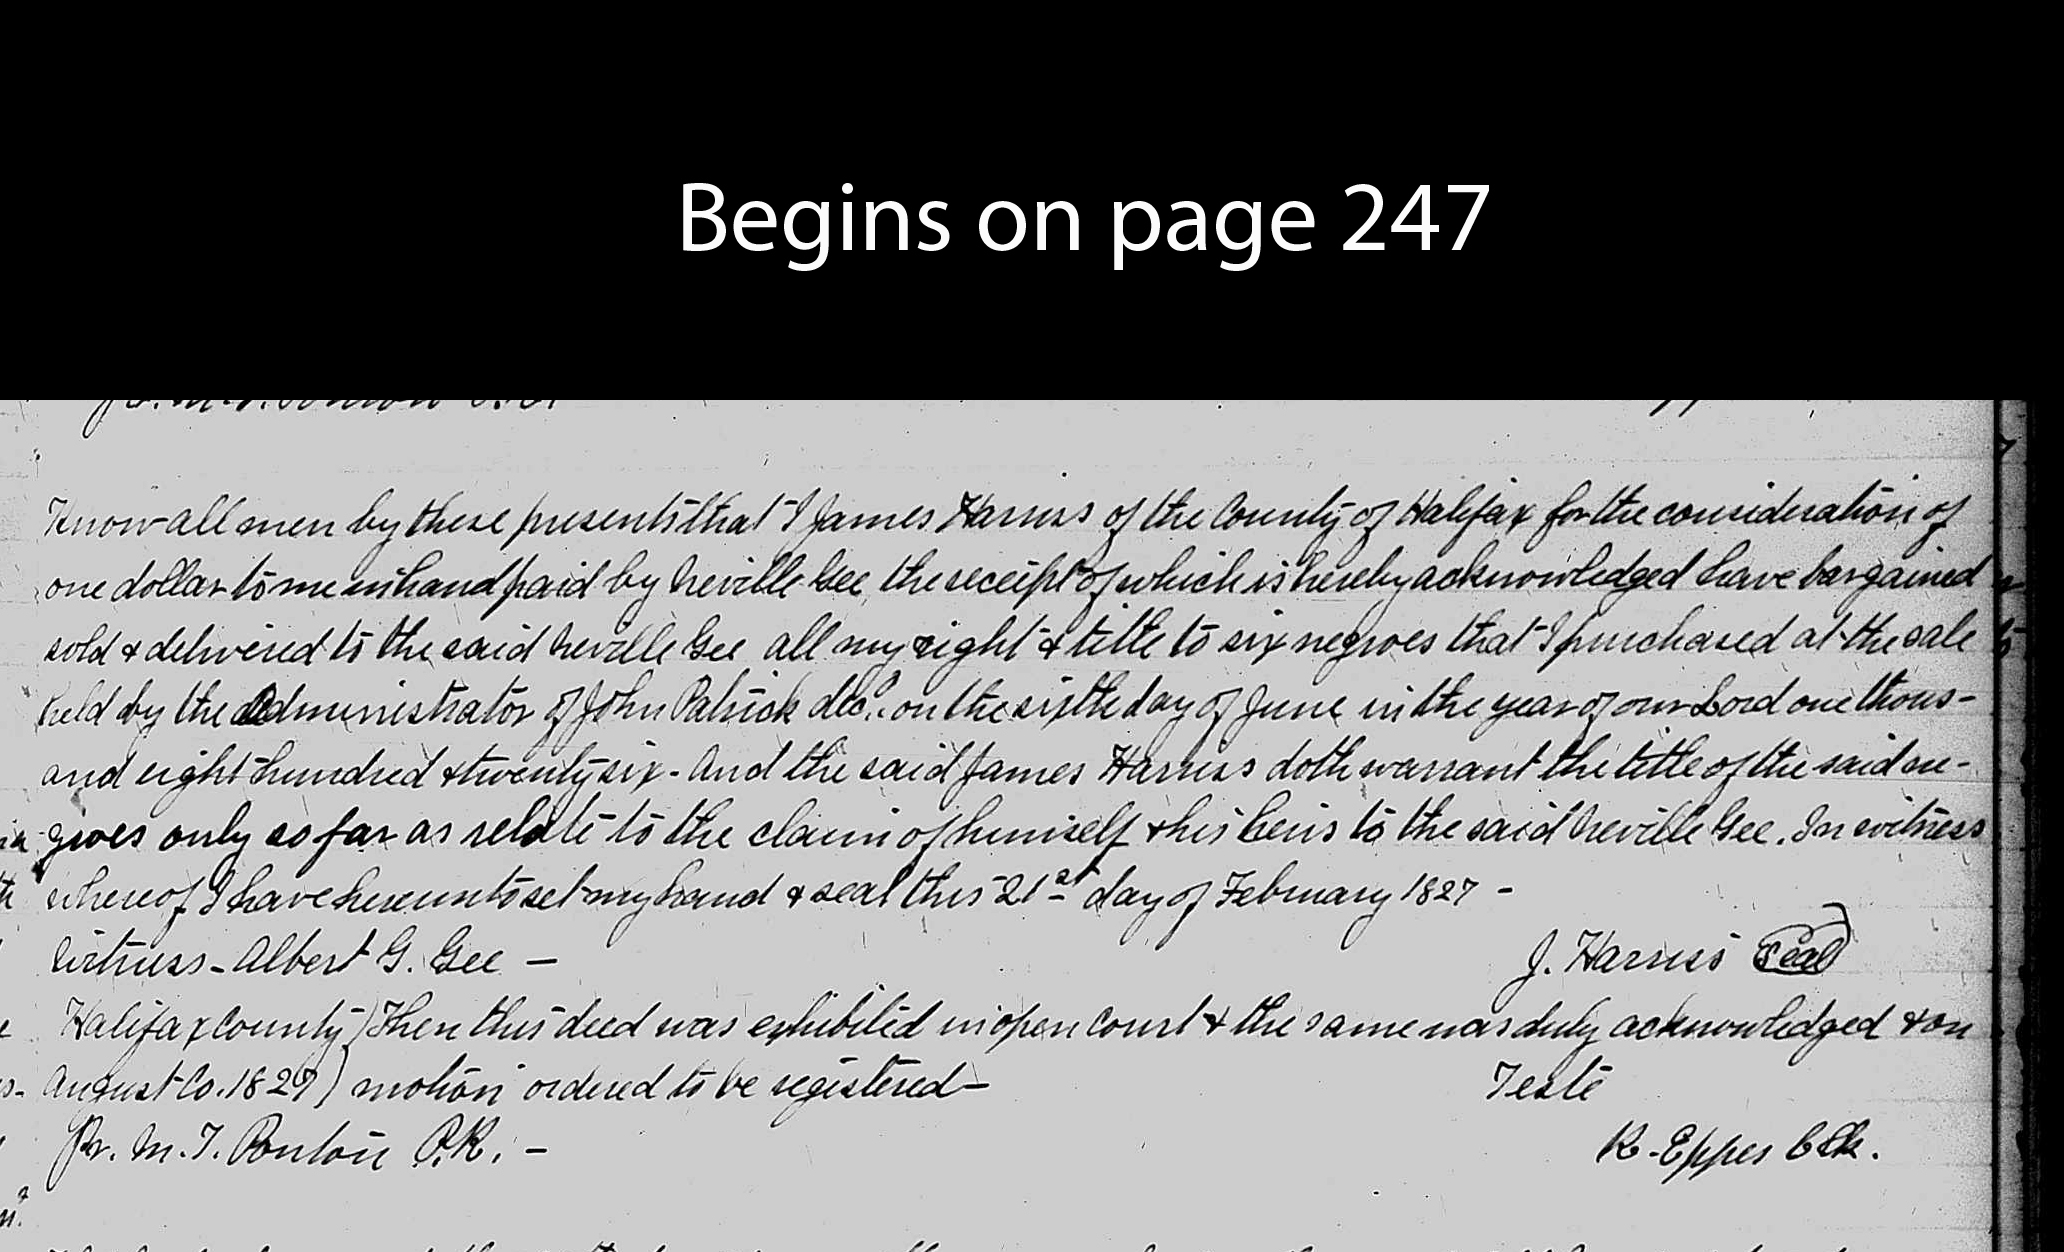 Begins on page 247
Know all men by these presents that I James Harriss of the County of Halifax for the consideration of
one dollar to me in hand paid by Neville Gee the receipt of which is hereby acknowledged have bargained
sold & delivered to the said Neville Gee all my right & title to six negroes that I purchased at the sale
held by the Administrator of John Patrick decd. on the sixth day of June in the year of our Lord one thous-
and eight hundred & twenty six - And the said James Harriss doth warrant the title of the said ne-
groes only so far as relate to the claim of himself & his heirs to the said Neville Gee. In witness
whereof I have hereunto set my hand & seal this 21st day of February 1827 -
Witness - Albert G. Gee -
J. Harriss Seal
Halifax County ) Then this deed was exhibited in open court & the same was duly acknowledged & on
August Co. 1827 ) motion ordered to be registered -
Teste
Pr. M. T. Ponton P.R. -
R. Eppes Clk.